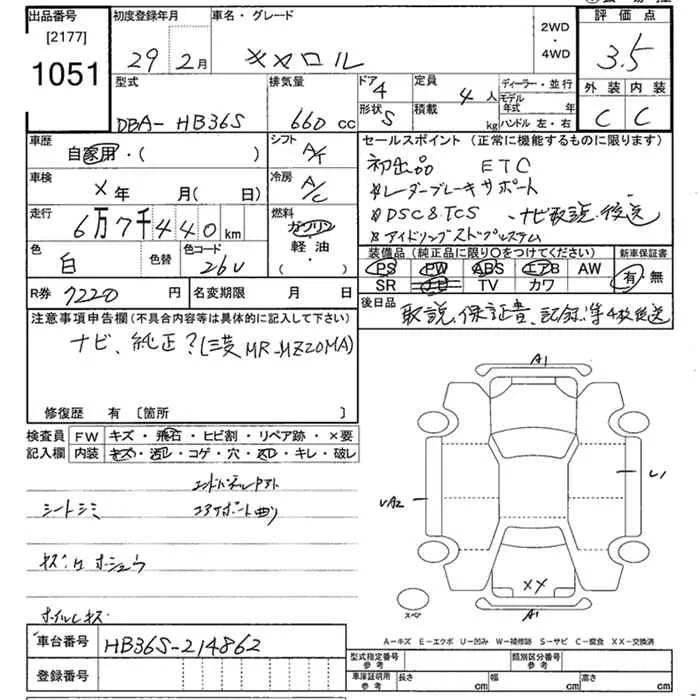 出品番号 初度登録年月 車名・グレード 2WD・4WD 評価点
[2177]
1051
29年2月 キャロル 3.5
型式 排気量 ドア 4 定員 4人 ディーラー・並行 外装 内装
DBA-HB36S 660cc 形状 S 積載 kg モデル年式 年 ハンドル 左・右 C C
車歴 自家用・( ) シフト A/T セールスポイント (正常に機能するものに限ります)
初出品 ETC
車検 ×年 月(日) 冷房 A/C レーダーブレーキサポート
走行 6万7千440km 燃料 ガソリン 軽油・( ) DSC&TCS ナビ取説、後送
アイドリングストップシステム
色 白 色替 色コード 26U 装備品 (純正品に限り○をつけてください) 新車保証書
PS PW ABS エアB AW 有・無
SR TV カワ
R券 7220円 名変期限 月 日 後日品 取説、保証書、記録簿4枚後送
注意事項申告欄(不具合内容等は具体的に記入して下さい)
ナビ、純正?(三菱 MR-MZ20MA)
修復歴 有 [箇所 ]
検査員記入欄 FW キズ・飛石・ヒビ割・リペア跡・×要
内装 キズ・汚レ・コゲ・穴・スレ・キレ・破レ
シートシミ
ホイルキズ
A1
UA2 U1
XX
スペア A1
A-キズ E-エクボ U-凹み W-補修跡 S-サビ C-腐食 XX-交換済
車台番号 HB36S-214862
登録番号
型式指定番号 参考 類別区分番号 参考
車庫証明用 参考 長さ cm 幅 cm 高さ cm